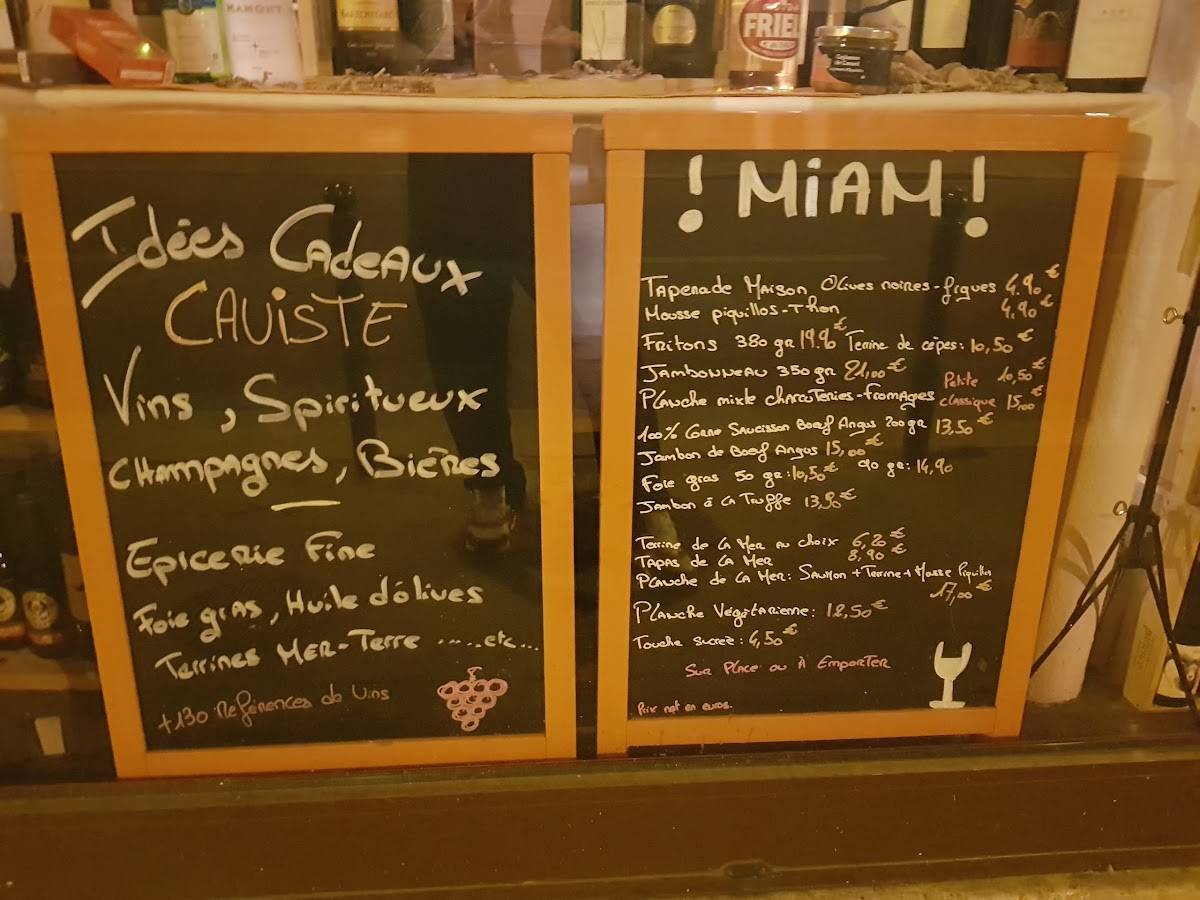 FRIEL
Idées Cadeaux
CAVISTE
Vins, Spiritueux
CHAMPAgnes, Bières
Epicerie Fine
Foie gras, Huile d'olives
Terrines Mer-Terre .....etc...
+130 Références de Vins
! MiAM !
Tapenade Maison Olives noires-figues 4.90€
Mousse piquillos-Thon 4,90€
Fritons 380 gr 19.90€ Terrine de cèpes: 10,50€
Jambonneau 350 gr 21,00€
Planche mixte charcuteries-fromages Petite 10,50€
classique 15,00€
100% Saucisson Boeuf Angus 200 gr 13,50€
Jambon de Boeuf Angus 15,00€
Foie gras 50 gr: 10,50€ 90 gr: 14,90
Jambon à la Truffe 13,90€
Terrine de la Mer au choix 6,20€
Tapas de la Mer 8,90€
Planche de la Mer: Saumon+Terrine+Mousse Piquillos
17,00€
Planche Végétarienne: 12,50€
Touche sucrée: 4,50€
Sur Place ou à Emporter
Prix net en euros.